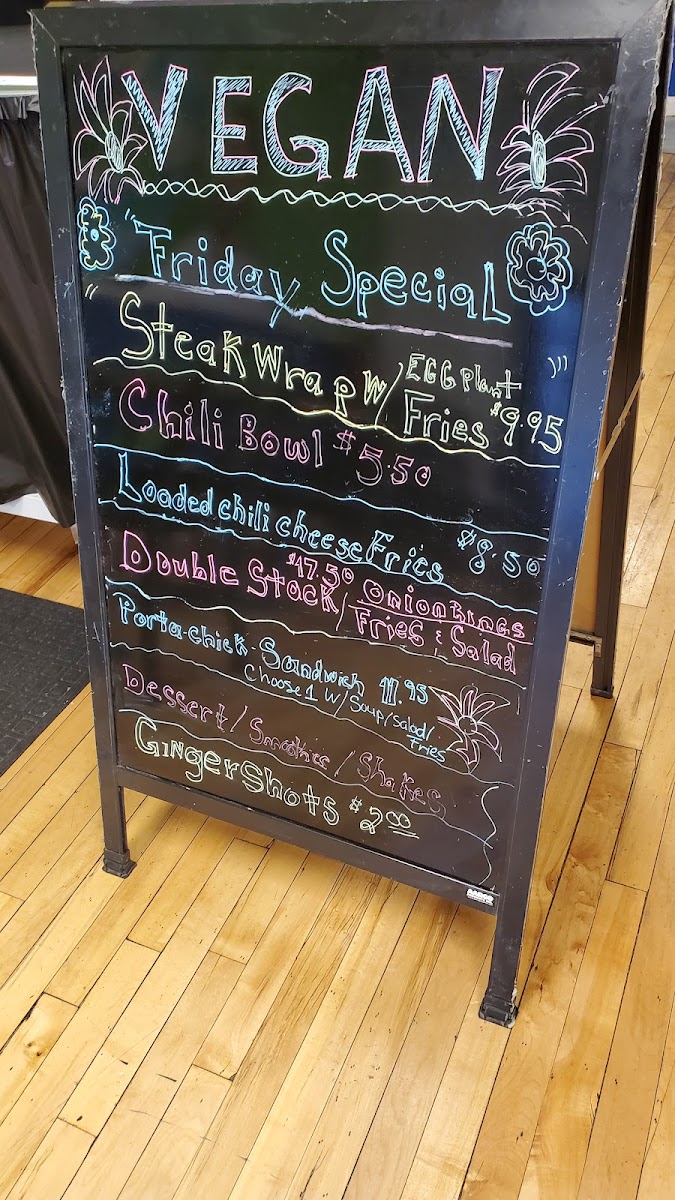 VEGAN
"Friday Special
"Steak Wrap W/ EGGplant Fries $9.95 "
Chili Bowl $5.50
Loaded chili cheese Fries $8.50
Double Stack/ $17.50 Onion Rings
Fries & Salad
Porta-chick. Sandwich 11.95
Choose 1 W/ Soup/salad/
Fries
Dessert/ Smoothies / Shakes
Ginger Shots $2.00